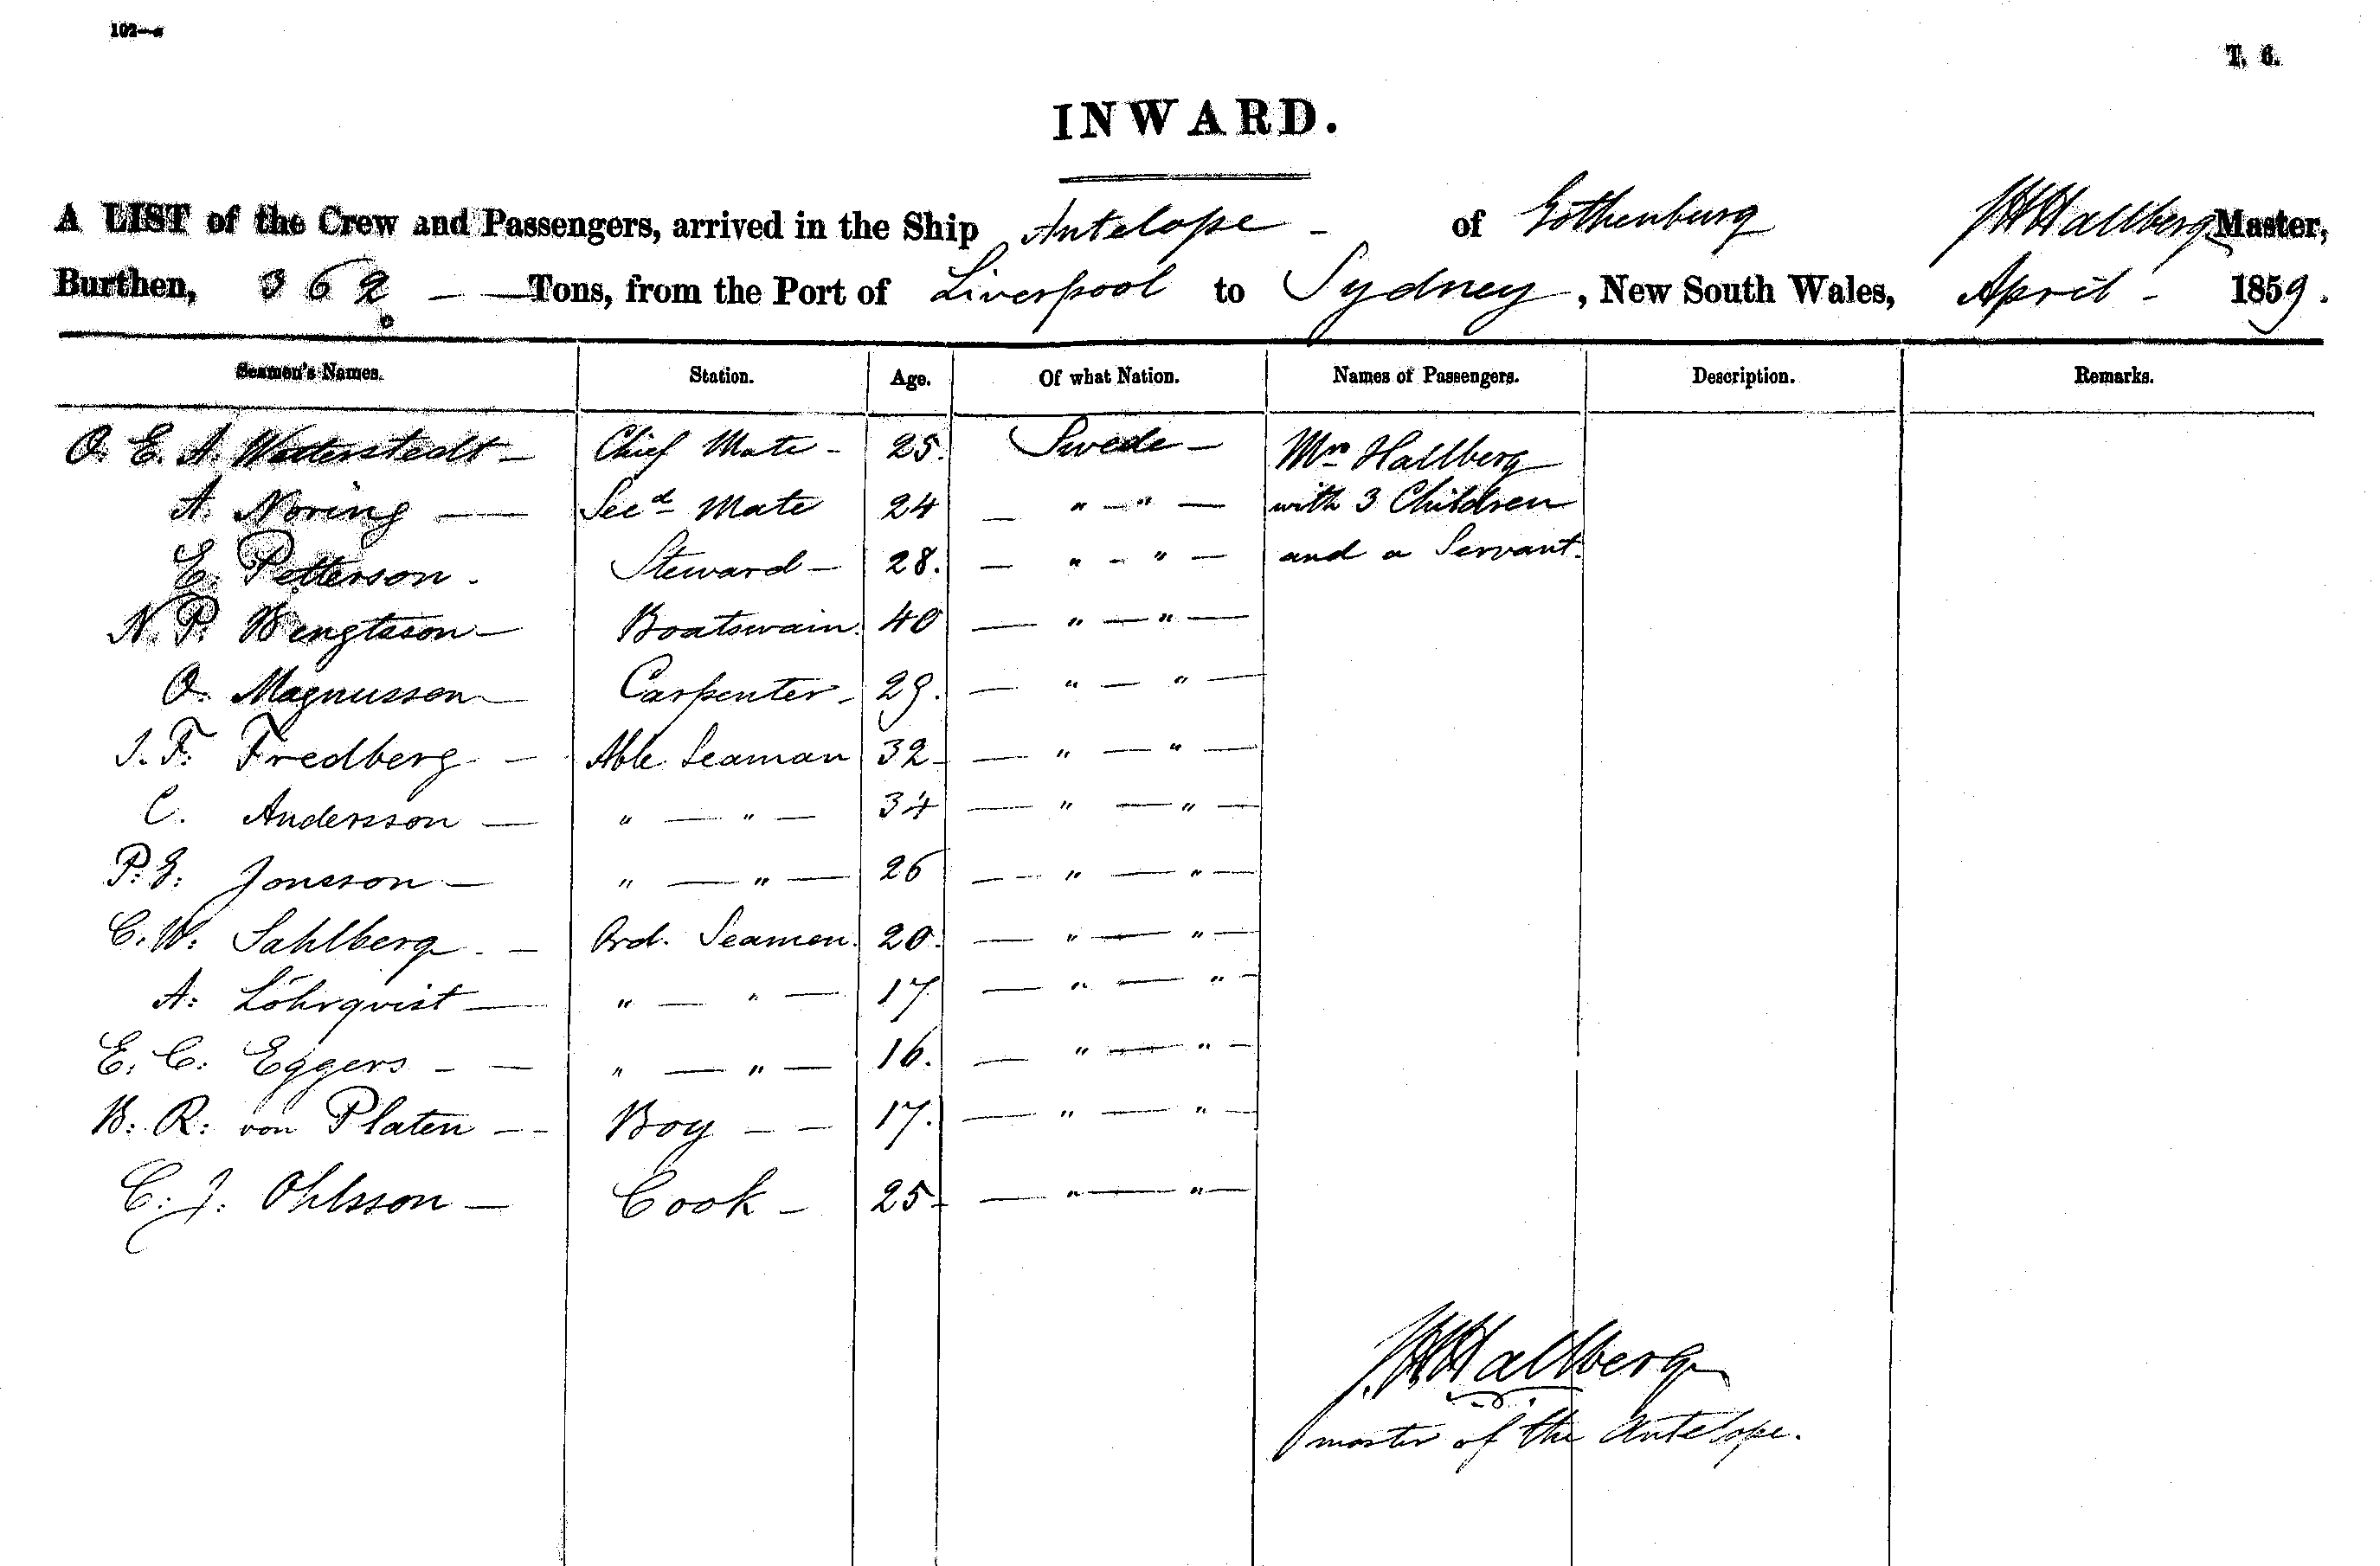 102—a
T. 6.
INWARD.
A LIST of the Crew and Passengers, arrived in the Ship Antelope - of Gothenburg J H Hallberg Master,
Burthen, 362 — — Tons, from the Port of Liverpool to Sydney, New South Wales, April - 1859.
Seamen's Names. Station. Age. Of what Nation. Names of Passengers. Description. Remarks.
O. E. A. Wetterstedt — Chief Mate - 25. Swede — Mrs Hallberg
A. Noring — Secd Mate 24 — " — " — with 3 Children
E. Petterson. Steward — 28. — " - " — and a Servant.
N. P. Bengtsson — Boatswain. 40 — " — " —
O. Magnusson — Carpenter - 29. — " — " —
J. F. Fredberg - — Able Seaman 32 - — " — " —
C. Andersson — " — " — 34 — " — " —
P. E: Jonsson — " — " — 26 — - " — " —
C. W: Sahlberg - — Ord. Seamen. 20. — " — " —
A: Löhrqvist — " — " — 17 — " — " -
E. C: Eggers - — " — " — 16. — " — " -
B: R: von Platen — - Boy — — 17. — " — " —
C. J: Ohlsson — Cook - 25 - — " — " —
J. H Hallberg
master of the Antelope.